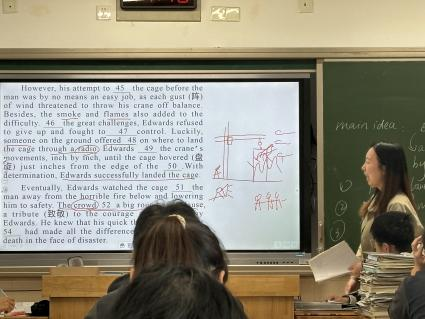 However, his attempt to 45 the cage before the
man was by no means an easy job, as each gust (阵)
of wind threatened to throw his crane off balance.
Besides, the smoke and flames also added to the
difficulty. 46 the great challenges, Edwards refused
to give up and fought to 47 control. Luckily,
someone on the ground offered 48 on where to land
the cage through a radio. Edwards 49 the crane's
movements, inch by inch, until the cage hovered (盘
旋) just inches from the edge of the 50. With
determination, Edwards successfully landed the cage.
Eventually, Edwards watched the cage 51 the
man away from the horrible fire below and lowering
him to safety. The crowd 52 a big
a tribute (致敬) to the courage
Edwards. He knew that his quick
54 had made all the difference
death in the face of disaster.
main idea: